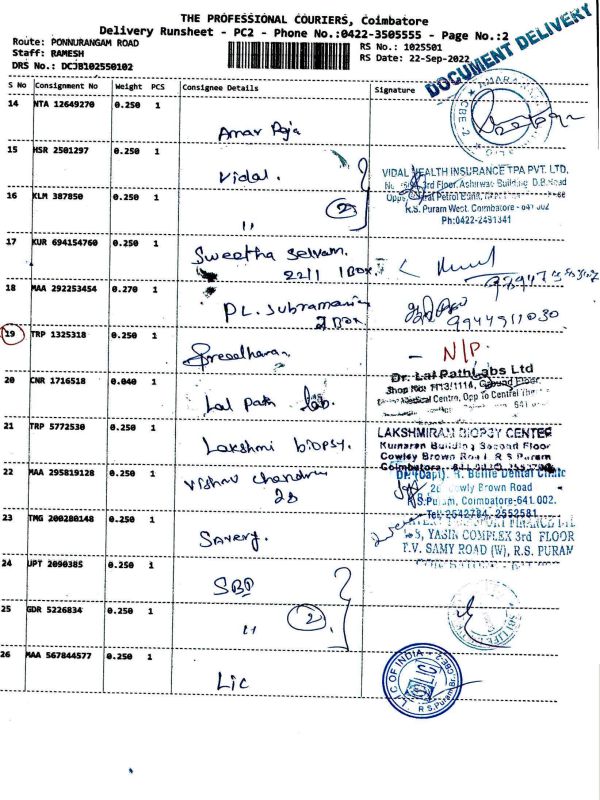 THE PROFESSIONAL COURIERS, Coimbatore
Delivery Runsheet - PC2 - Phone No.:0422-3505555 - Page No.:2
Route: PONNURANGAM ROAD
RS No.: 1025501
Staff: RAMESH
RS Date: 22-Sep-2022
DRS No.: DCJB102550102
DOCUMENT DELIVERY
S No Consignment No Weight PCS Consignee Details Signature
14 NTA 12649270 0.250 1
Amar Raja
15 HSR 2501297 0.250 1
Vidal.
VIDAL HEALTH INSURANCE TPA PVT. LTD.
3rd Floor, Ashirwad Building, D.B.Road
16 KLM 387850 0.250 1
R.S. Puram West, Coimbatore - 641 002
Ph:0422-2491341
" (2)
17 KUR 694154760 0.250 1
Swetha Selvam.
2211 1 Box.
18 MAA 292253454 0.270 1
PL. Subramania
2 Box
9944911030
19 TRP 1325318 0.250 1
Sreedharan
- N/P.
20 CNR 1716518 0.040 1
Lal Path lab.
Dr. Lal PathLabs Ltd
Shop No: 1113/1114, Ground Floor,
Medical Centre, Opp To Central
21 TRP 5772530 0.250 1
Lakshmi biopsy.
LAKSHMIRAM BIOPSY CENTER
Kumaran Building Second Floor
Cowley Brown Road R S Puram
Coimbatore
22 MAA 295819128 0.250 1
Vishnu Chandru
28
Dental Clinic
Cowly Brown Road
R.S.Puram, Coimbatore-641 002.
Tel: 2542784, 2552581
23 TMG 200280148 0.250 1
Savery.
YASIN COMPLEX 3rd FLOOR
T.V. SAMY ROAD (W), R.S. PURAM
24 UPT 2090385 0.250 1
SBI
25 GDR 5226834 0.250 1
" (2)
SBI LIFE
26 MAA 567844577 0.250 1
Lic
L I C OF INDIA
LIC
R S.Puram Br.